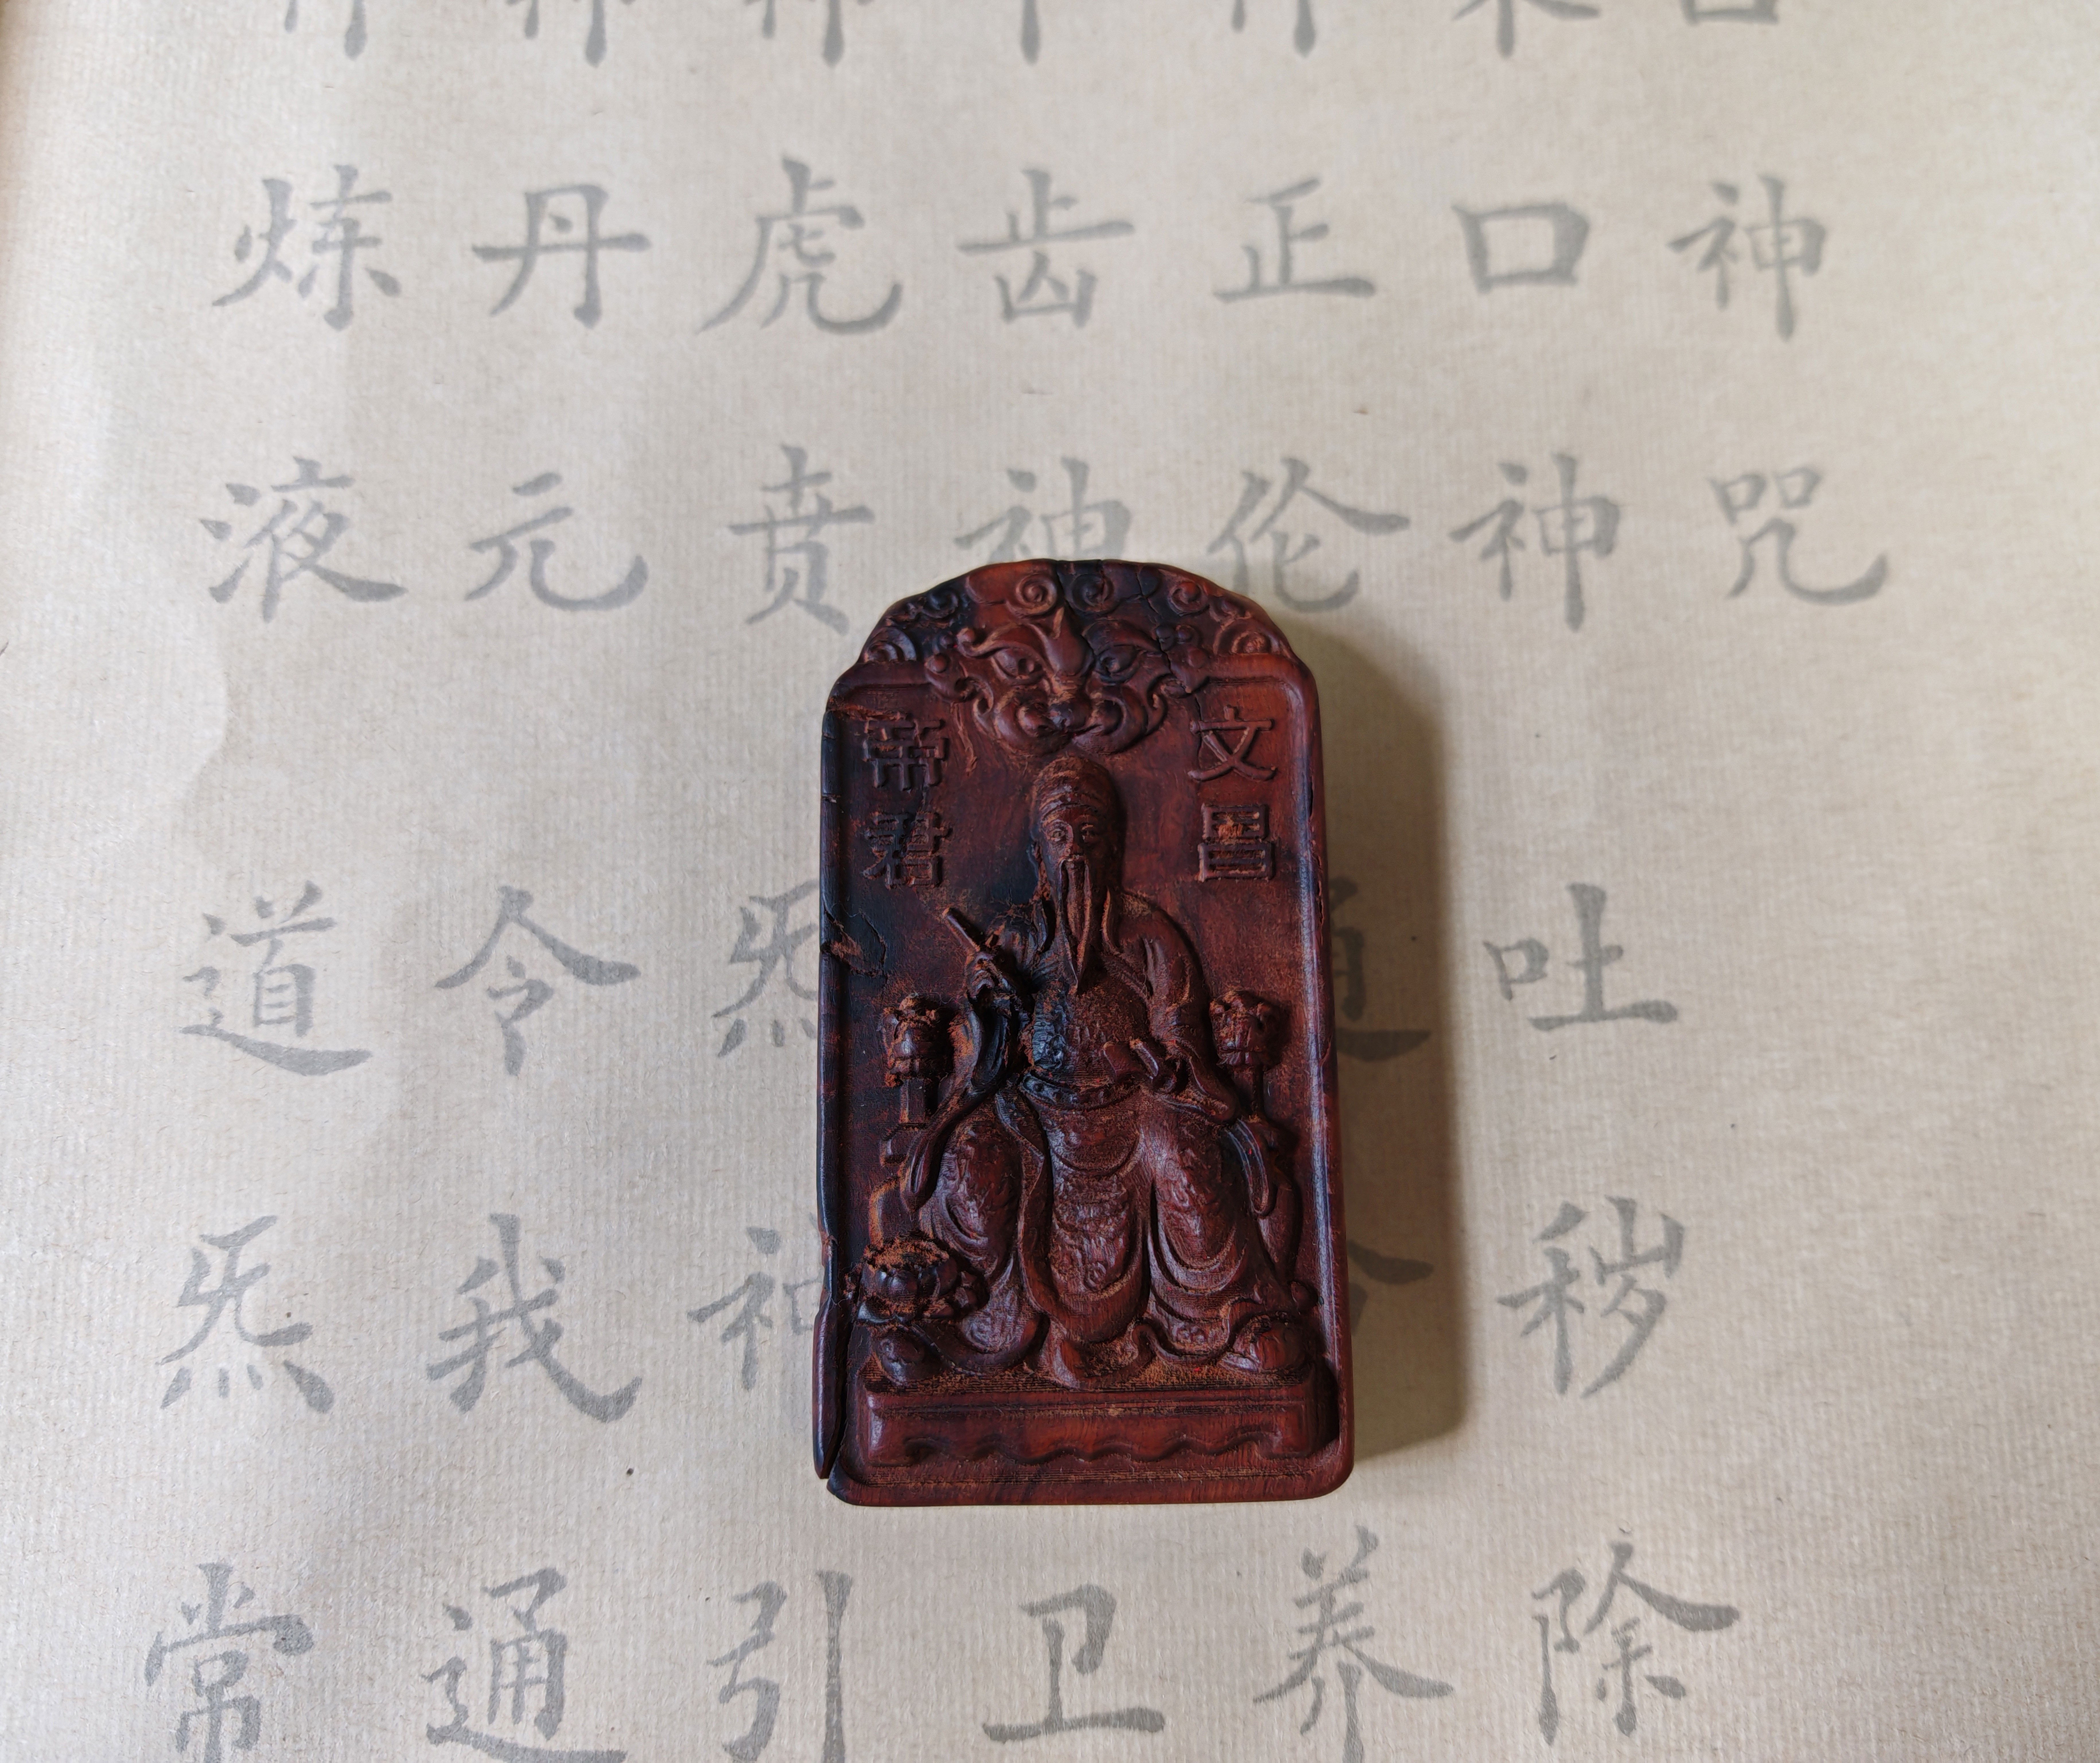 文昌
帝君
神咒
口神吐秽除
正伦养
齿神卫
虎贲炁神引
丹元令我通
炼液道炁常